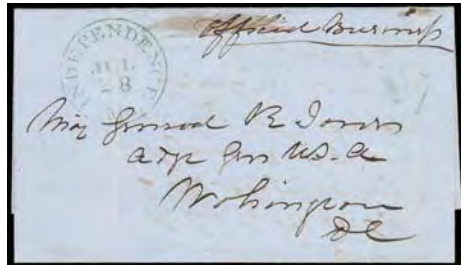 INDEPENDENCE
JUL
28
Official Business
Maj General R Jones
adjt Gen U.S.A
Washington
DC